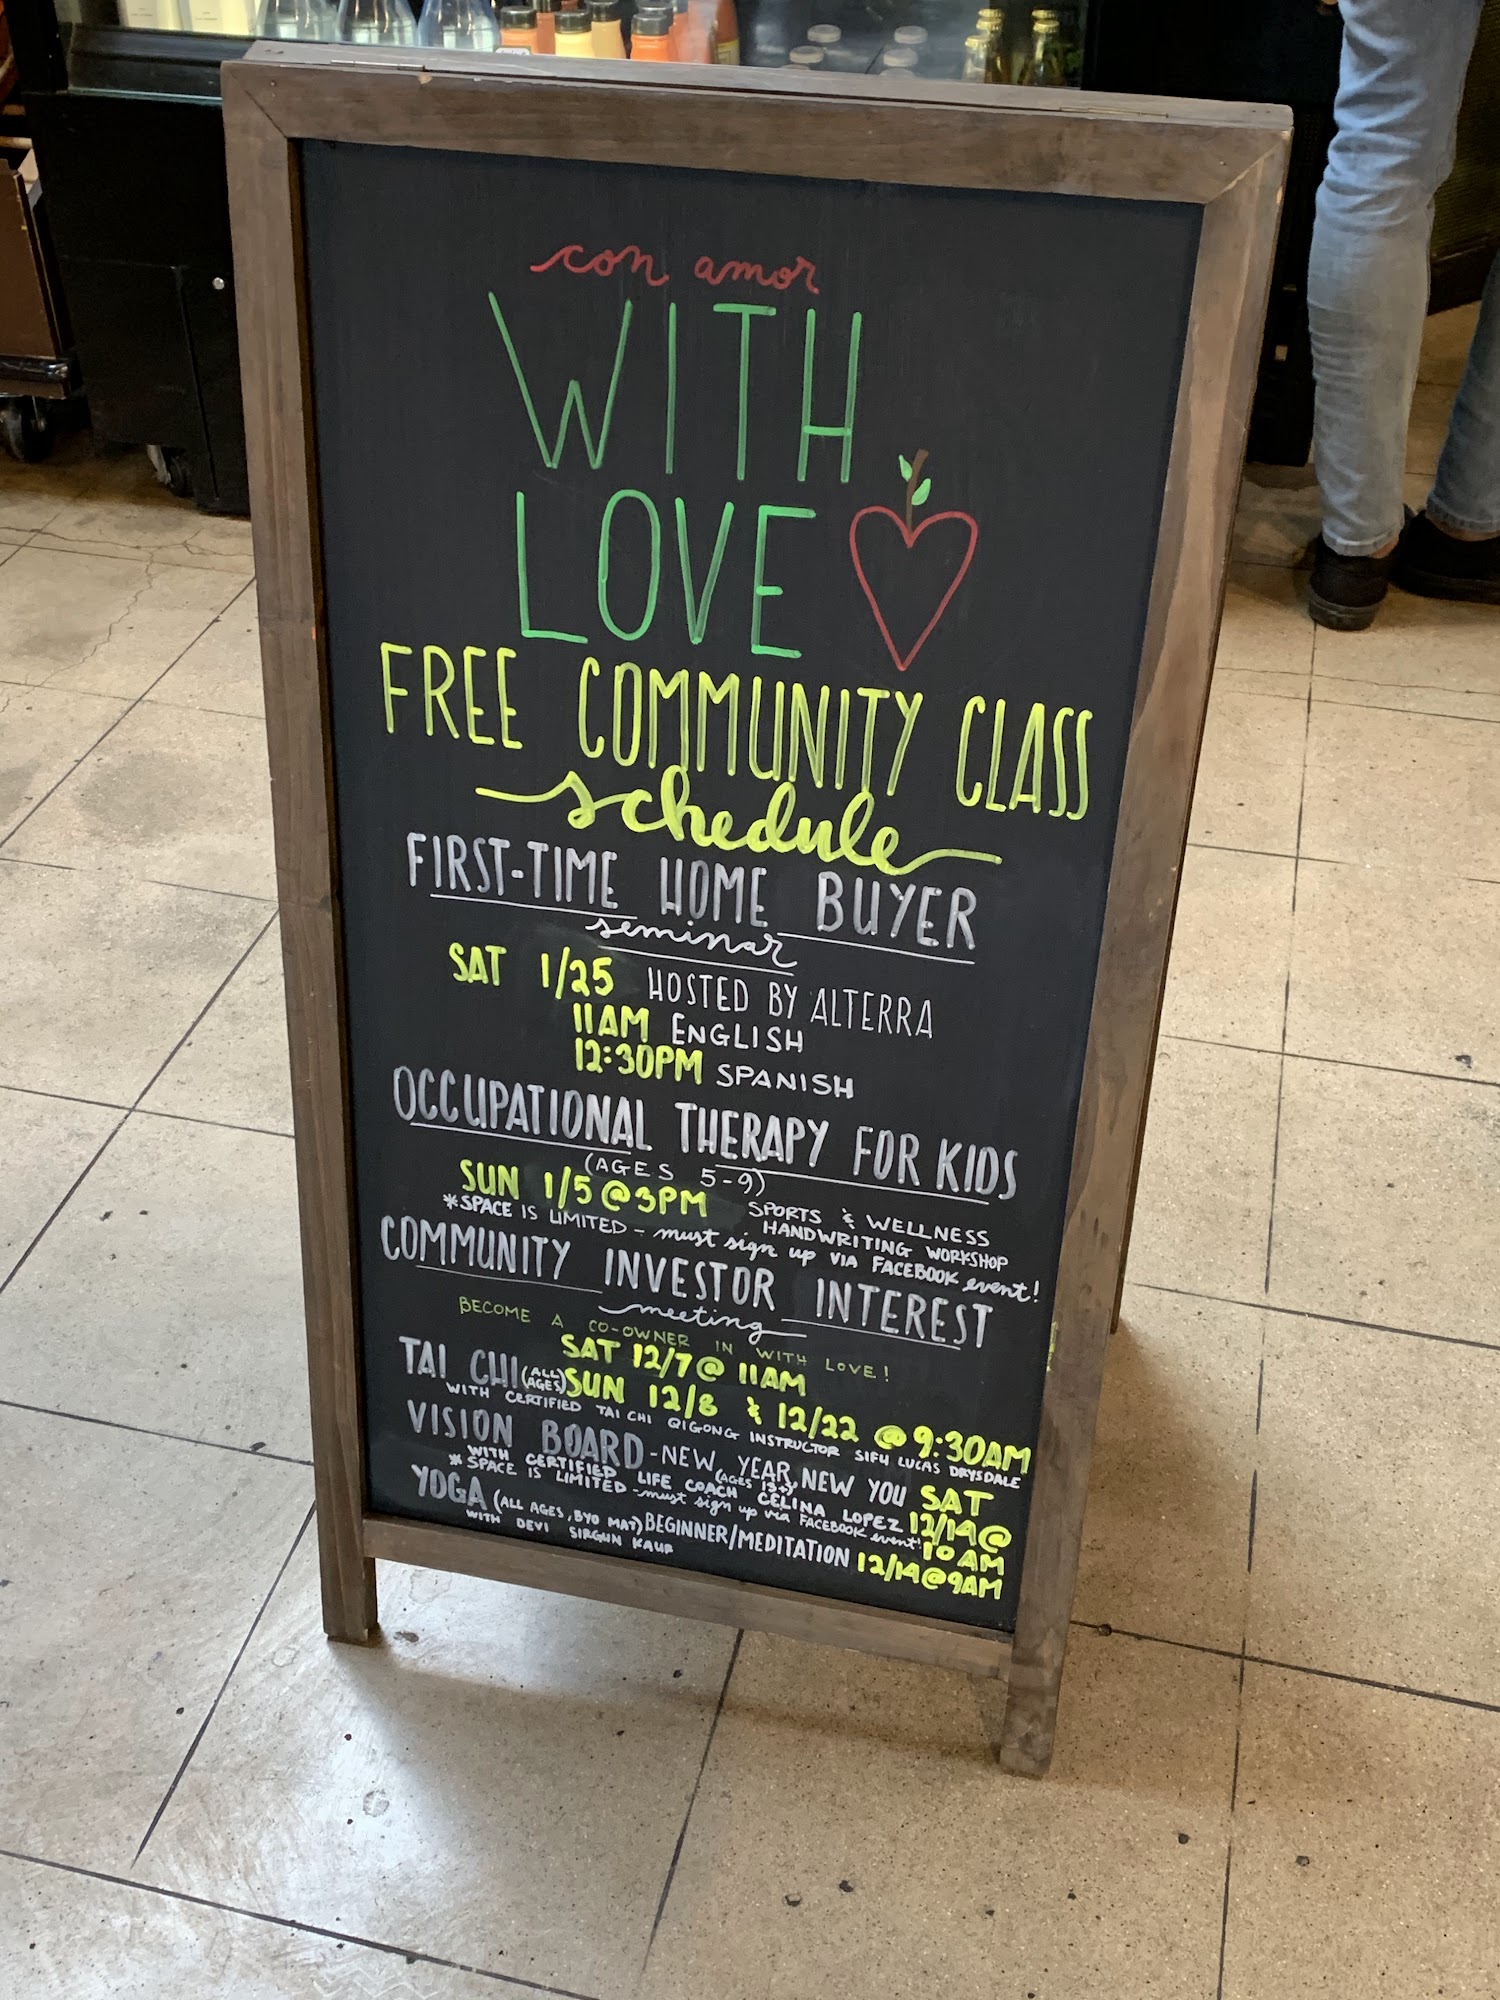 con amor
WITH
LOVE
FREE COMMUNITY CLASS
schedule
FIRST-TIME HOME BUYER
seminar
SAT 1/25 HOSTED BY ALTERRA
11AM ENGLISH
12:30PM SPANISH
OCCUPATIONAL THERAPY FOR KIDS
(AGES 5-9)
SUN 1/5 @ 3PM SPORTS & WELLNESS
HANDWRITING WORKSHOP
*SPACE IS LIMITED - must sign up VIA FACEBOOK event!
COMMUNITY INVESTOR INTEREST
meeting
BECOME A CO-OWNER IN WITH LOVE!
SAT 12/7 @ 11AM
TAI CHI (ALL AGES) SUN 12/8 & 12/22 @ 9:30AM
WITH CERTIFIED TAI CHI QIGONG INSTRUCTOR SIFU LUCAS DRYSDALE
VISION BOARD - NEW YEAR, NEW YOU SAT
(AGES 13+)
WITH CERTIFIED LIFE COACH CELINA LOPEZ 12/14 @
*SPACE IS LIMITED - must sign up via FACEBOOK event! 10AM
YOGA (ALL AGES, BYO MAT) BEGINNER/MEDITATION 12/14 @ 9AM
WITH DEVI SIRGUN KAUR